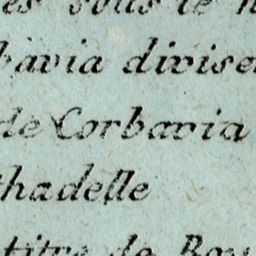 es sous le
bavia divise
de Corbavia
thadelle
titre de Roy